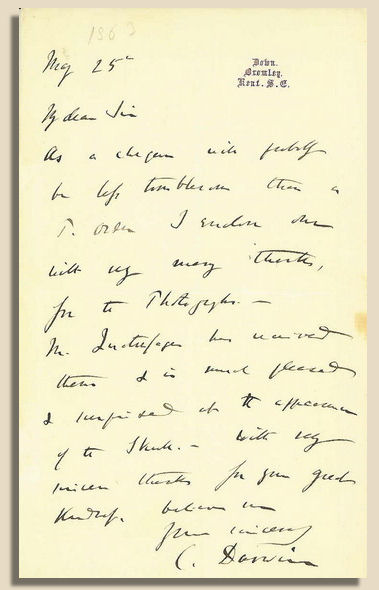 1863
May 25th
Down.
Bromley.
Kent. S.E.
My dear Sir
As a cheque will probably
be less troublesome than a
P. order I enclose one
with my many thanks,
for the Photographs. —
M. Quatrefages has received
them & is much pleased
& surprised at the appearance
of the Skull. — With my
sincere thanks for your great
kindness. believe me
Yours sincerely
C. Darwin